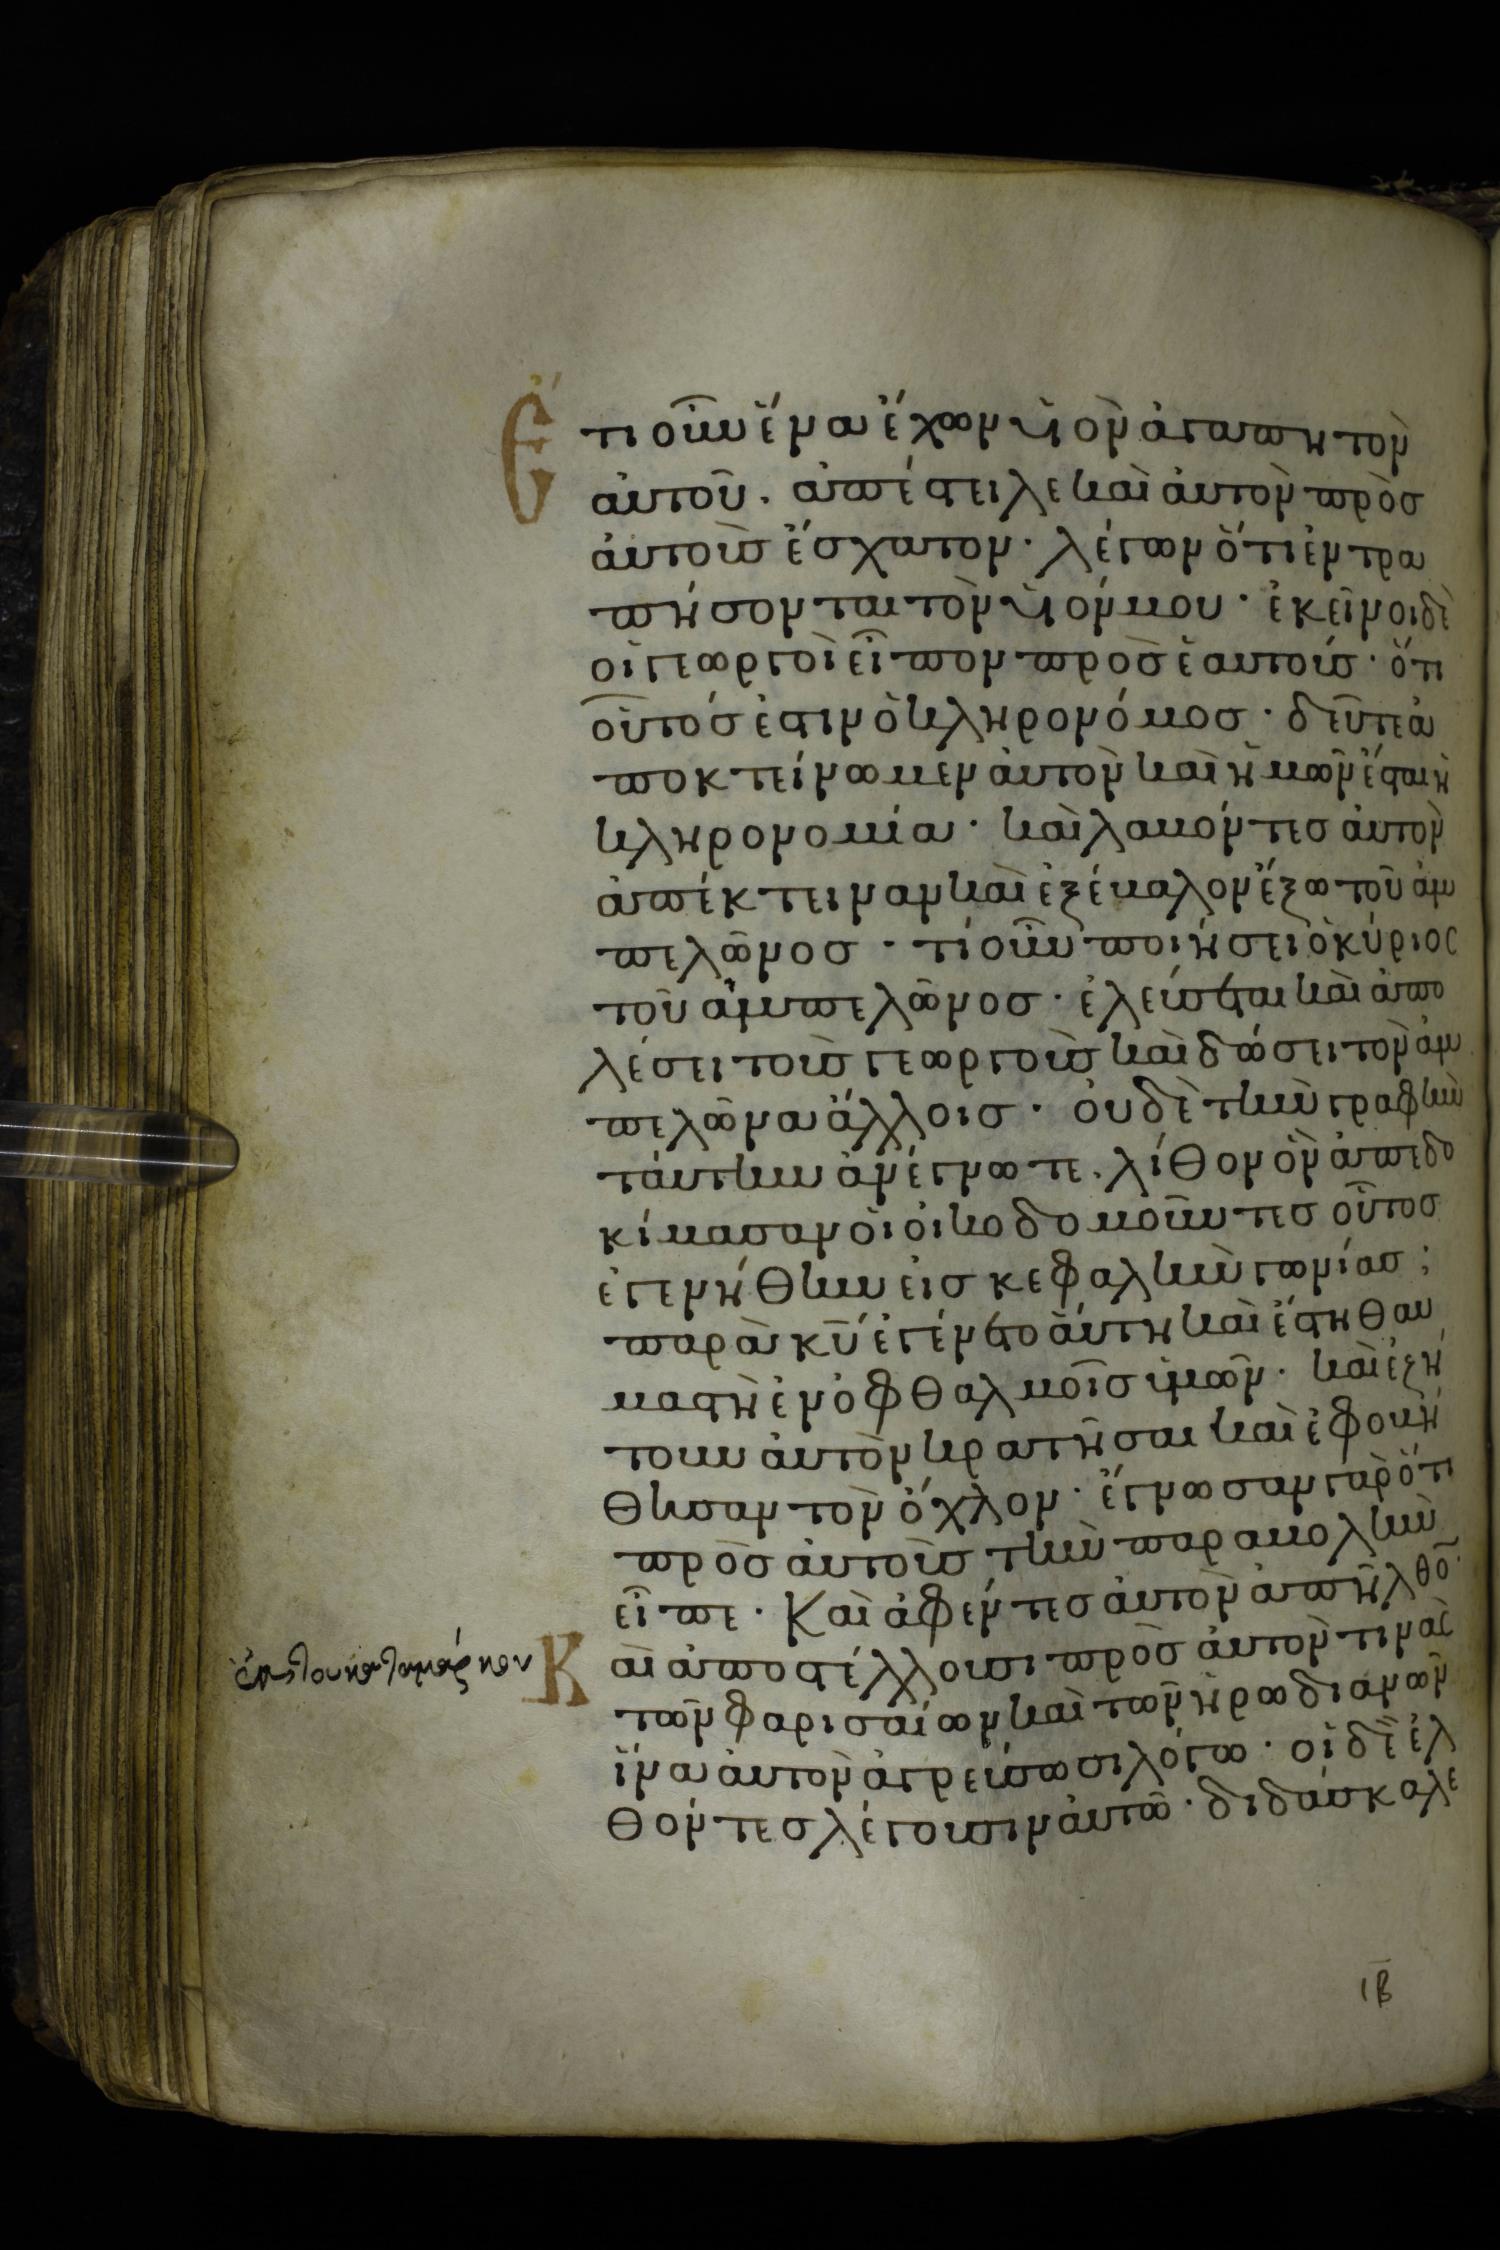 Ἔτι οὖν ἕνα ἔχων υἱὸν ἀγαπητὸν
αὐτοῦ· ἀπέστειλε καὶ αὐτὸν πρὸσ
αὐτοὺσ ἔσχατον· λέγων ὅτι ἐντρα
πήσονται τὸν υἱόν μου· ἐκεῖνοι δὲ
οἱ γεωργοὶ εἶπον πρὸσ ἑαυτούσ· ὅτι
οὗτόσ ἐστιν ὁ κληρονόμοσ· δεῦτε ἀ
ποκτείνωμεν αὐτὸν καὶ ἡμῶν ἔσται ἡ
κληρονομία· καὶ λαβόντεσ αὐτὸν
ἀπέκτειναν καὶ ἐξέβαλον ἔξω τοῦ ἀμ
πελῶνοσ· τί οὖν ποιήσει ὁ κύριοσ
τοῦ ἀμπελῶνοσ· ἐλεύσεται καὶ ἀπο
λέσει τοὺσ γεωργοὺσ καὶ δώσει τὸν ἀμ
πελῶνα ἄλλοισ· οὐδὲ τὴν γραφὴν
ταύτην ἀνέγνωτε· λίθον ὃν ἀπεδο
κίμασαν οἱ οἰκοδομοῦντεσ οὗτοσ
ἐγενήθην εἰσ κεφαλὴν γωνίασ;
παρὰ κυ ἐγένετο ἅυτη καὶ ἔστι θαυ
μαστὴ ἐν ὀφθαλμοῖσ ἡμῶν· καὶ ἐζή
τουν αὐτὸν κρατῆσαι καὶ ἐφοβή
θησαν τὸν ὄχλον· ἔγνωσαν γὰρ ὅτι
πρὸσ αὐτοὺσ τὴν παραβολὴν
εἶπε· Καὶ ἀφέντεσ αὐτὸν ἀπῆλθο̅·
Καὶ ἀποστέλλουσι πρὸσ αὐτὸν τινὰσ
τῶν φαρισαίων καὶ τῶν ἡρωδιανῶν
ἵνα αὐτὸν ἀγρεύσωσι λόγω· οἱ δὲ ἐλ
θόντεσ λέγουσιν αὐτῶ· διδάσκαλε
ιβ